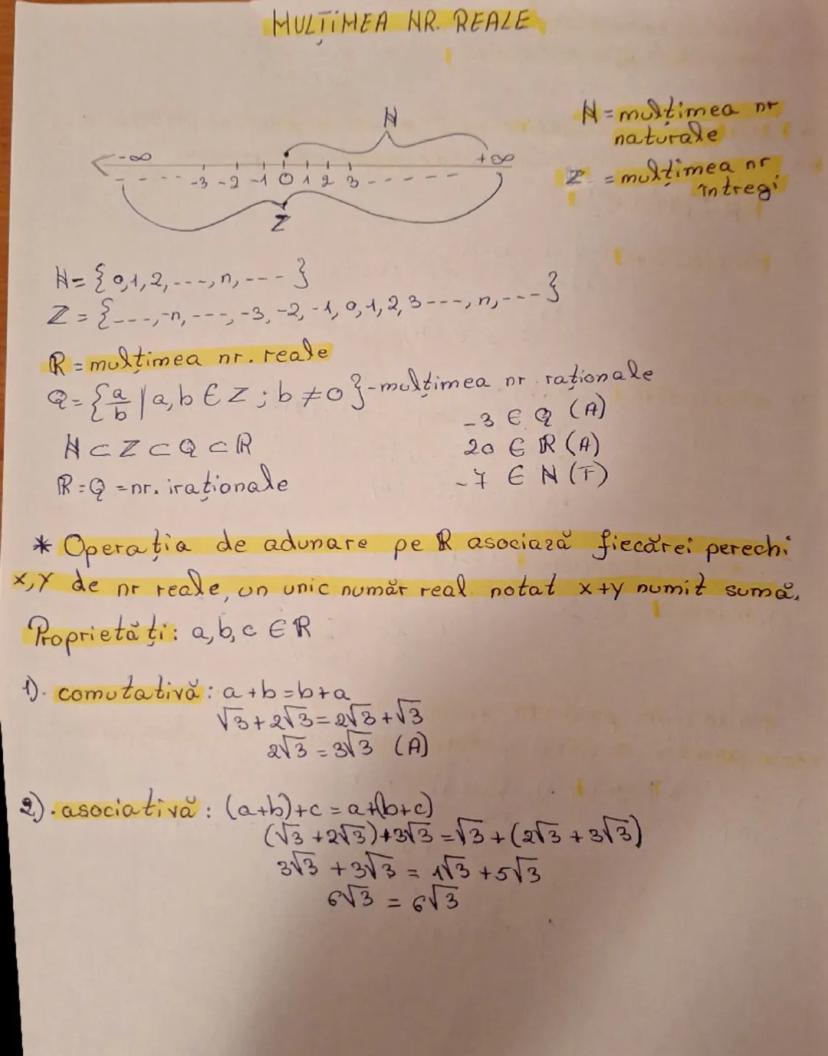 MULȚIMEA NR. REALE
N
N = mulțimea nr
naturale
-∞ +∞
- - - - - -3 -2 -1 0 1 2 3 - - - - - -
Z = mulțimea nr
întregi
Z
N = {0,1,2, ---, n, --- }
Z = {---, -n, ---, -3, -2, -1, 0, 1, 2, 3 ---, n, --- }
R = mulțimea nr. reale
Q = {a/b | a, b ∈ Z ; b ≠ 0} - mulțimea nr raționale
-3 ∈ Q (A)
N ⊂ Z ⊂ Q ⊂ R
20 ∈ R (A)
R = Q = nr. iraționale
-7 ∈ N (F)
* Operația de adunare pe R asociază fiecărei perechi
x, y de nr reale, un unic număr real notat x+y numit sumă.
Proprietăți: a, b, c ∈ R
1). comutativă : a + b = b + a
√3 + 2√3 = 2√3 + √3
2√3 = 3√3 (A)
2). asociativă : (a+b)+c = a+(b+c)
(√3 + 2√3) + 3√3 = √3 + (2√3 + 3√3)
3√3 + 3√3 = 1√3 + 5√3
6√3 = 6√3